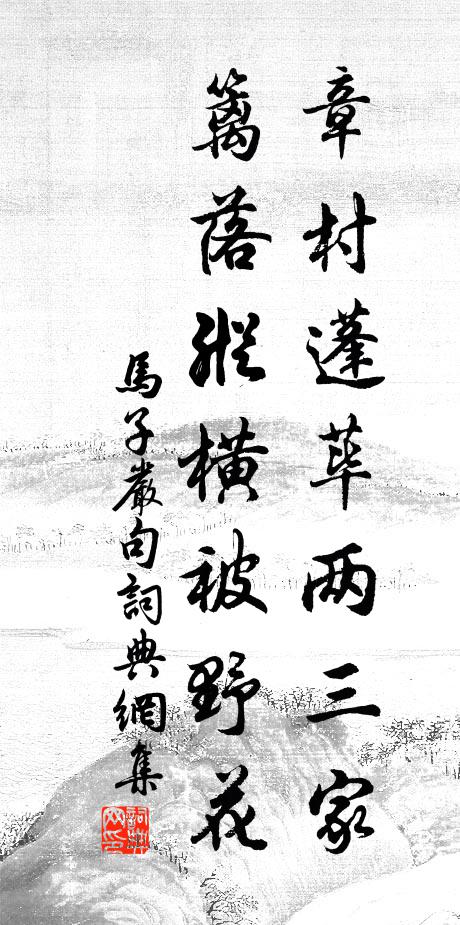 章村蓬荜两三家
篱落縱橫被野花
馬子嚴句詞典網集